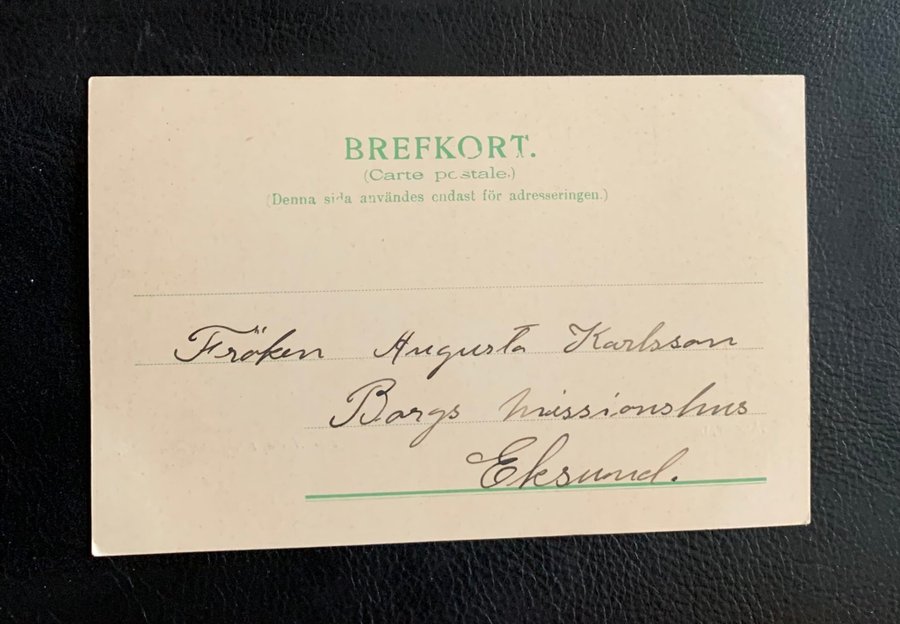 BREFKORT.
(Carte postale.)
(Denna sida användes endast för adresseringen.)
Fröken Augusta Karlsson
Borgs missionshus
Eksund.